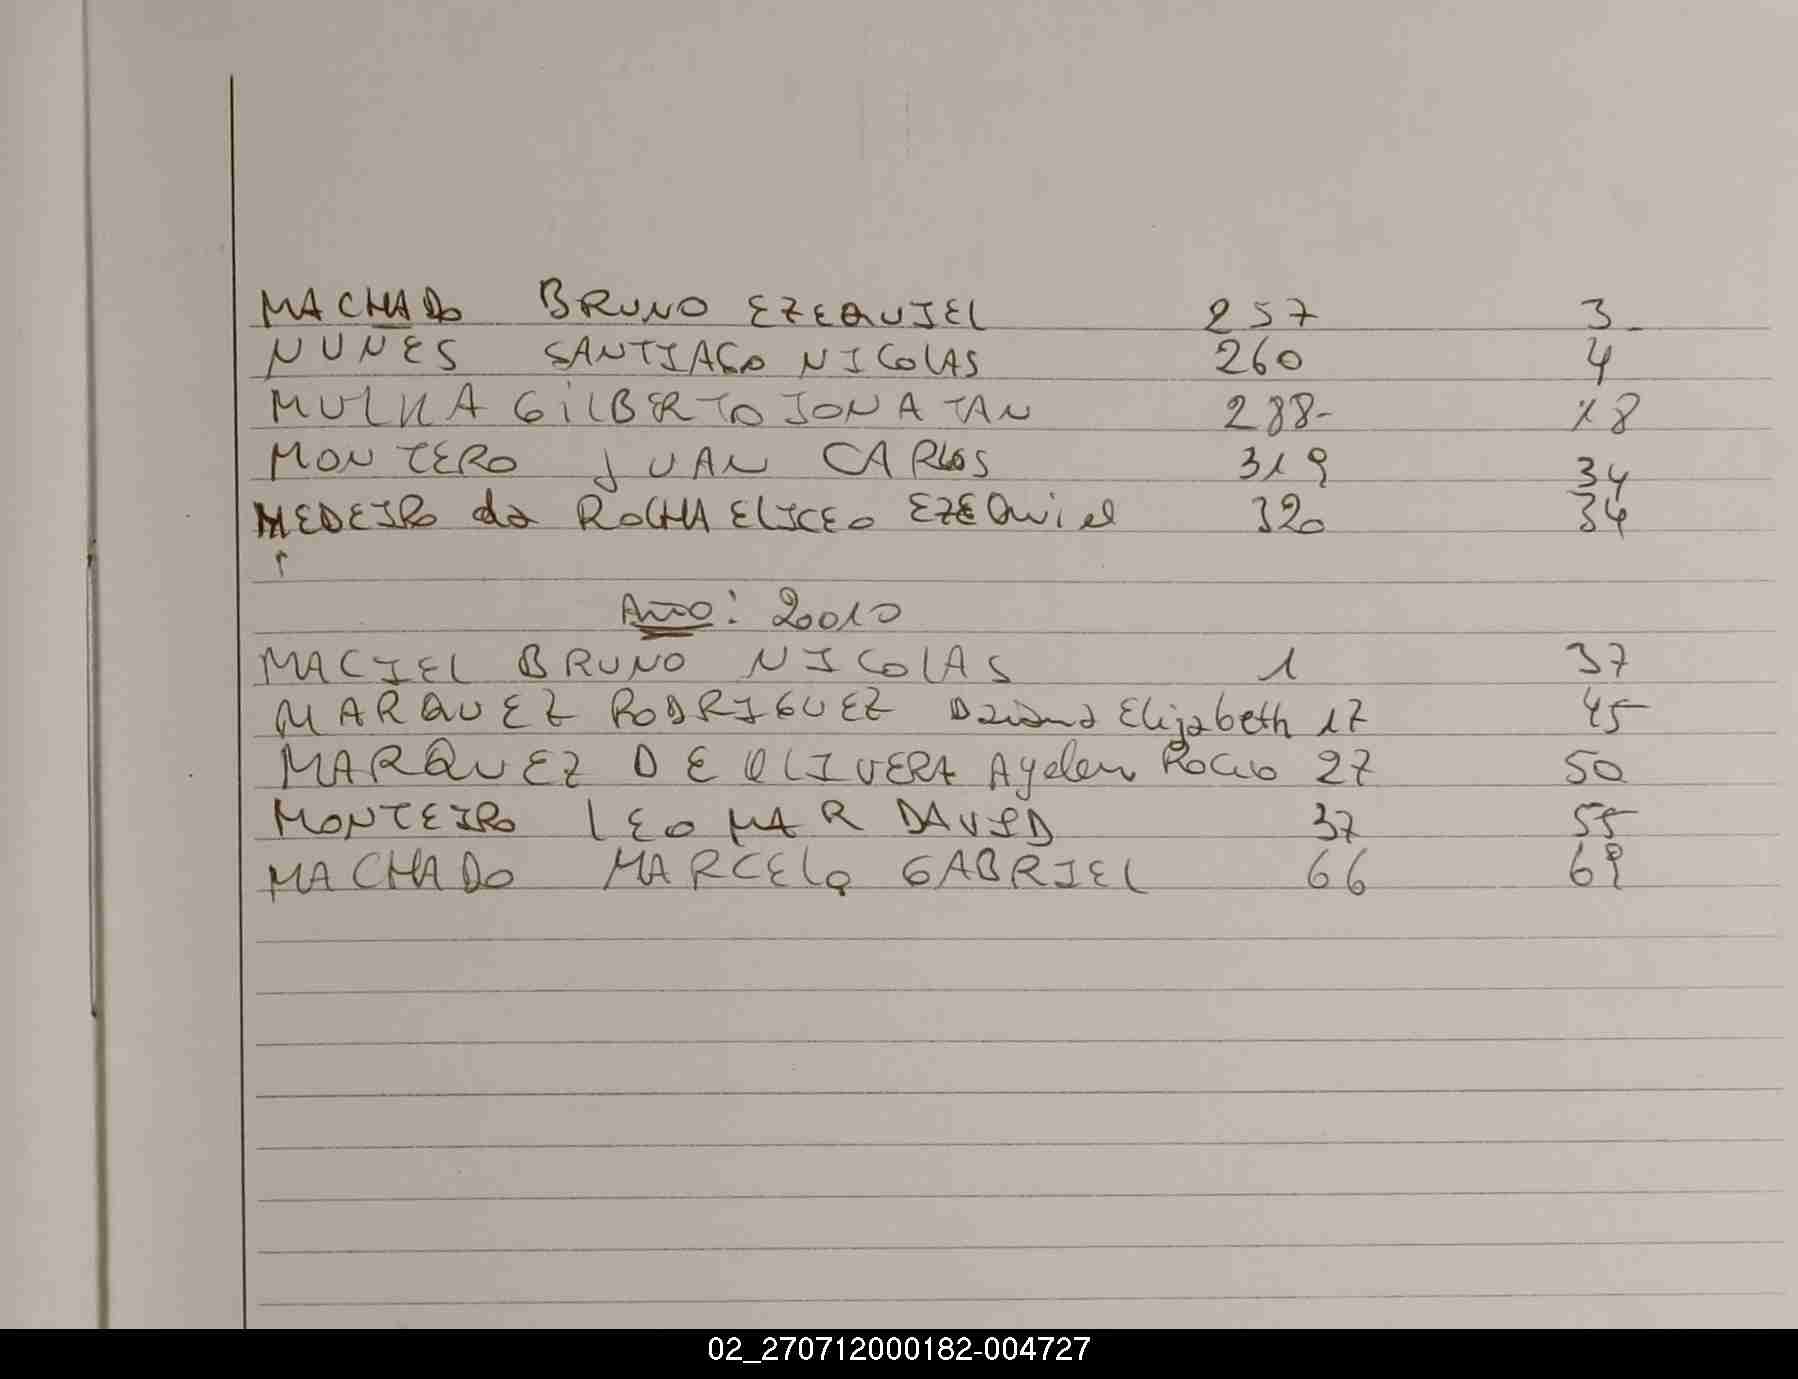 MACHADO BRUNO EZEQUIEL 257 3
NUNES SANTIAGO NICOLAS 260 4
MULKA GILBERTO JONATAN 288- 18
MONTERO JUAN CARLOS 319 34
MEDEIRO da ROCHA ELICEO EZEQuiel 320 34
Año: 20010
MACIEL BRUNO NICOLAS 1 37
MARQUEZ RODRIGUEZ Daiana Elizabeth 17 45
MARQUEZ DE OLIVERA Ayelen Rocio 27 50
MONTEIRO LEOMAR DAVID 37 55
MACHADO MARCELO GABRIEL 66 69
02_270712000182-004727